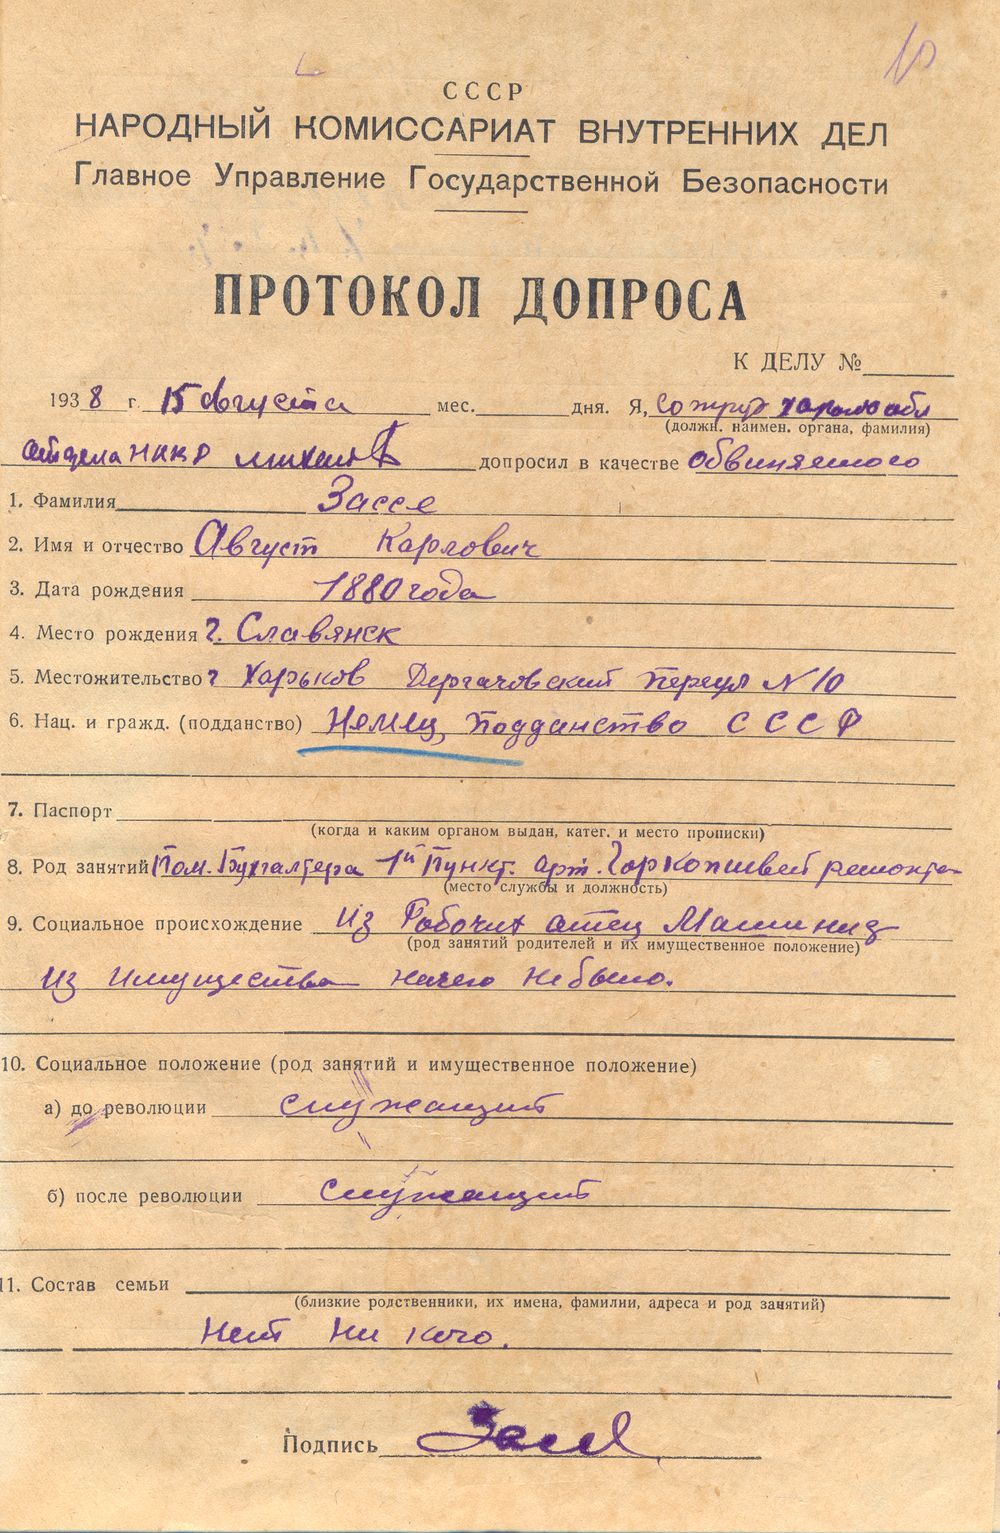 10
СССР
НАРОДНЫЙ КОМИССАРИАТ ВНУТРЕННИХ ДЕЛ
Главное Управление Государственной Безопасности
ПРОТОКОЛ ДОПРОСА
К ДЕЛУ №
1938 г. 15 августа мес. дня. Я,
(должн. наимен. органа, фамилия)
допросил в качестве обвиняемого
1. Фамилия Зассе
2. Имя и отчество Август Карлович
3. Дата рождения 1880 года
4. Место рождения г. Славянск
5. Местожительство г Харьков Дергачовский переул N 10
6. Нац. и гражд. (подданство) Немец, подданство СССР
7. Паспорт
(когда и каким органом выдан, катег. и место прописки)
8. Род занятий Пом. Бухгалтера 1й Пункт. арт.
(место службы и должность)
9. Социальное происхождение из Рабочих отец Машинис
(род занятий родителей и их имущественное положение)
из имущества ничего не было.
10. Социальное положение (род занятий и имущественное положение)
а) до революции служащий
б) после революции служащий
11. Состав семьи
(близкие родственники, их имена, фамилии, адреса и род занятий)
Нет ни кого.
Подпись Зассе